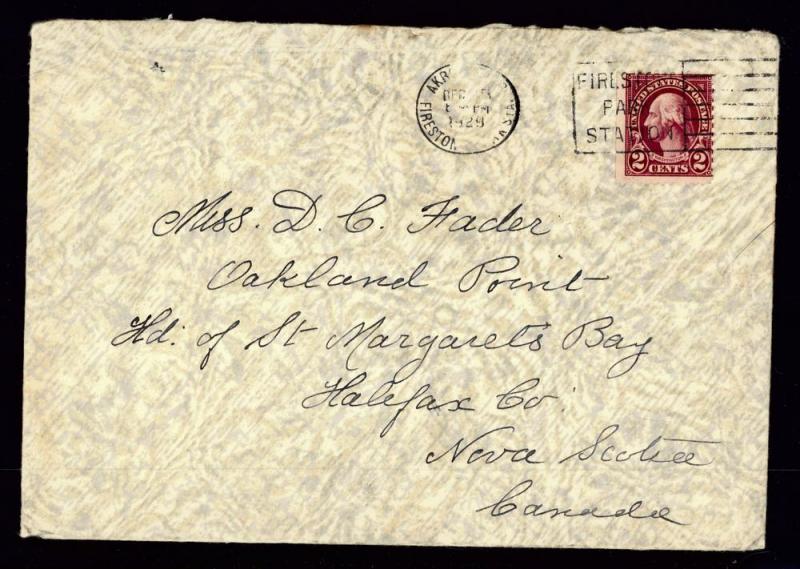 AKR
DEC
PM
1929
FIRESTON
STA.
FIRES
PA
STATION
UNITED STATES FOREVER
2 CENTS 2
Miss. D. C. Fader
Oakland Point
Hd. of St Margarets Bay
Halifax Co.
Nova Scotia
Canada